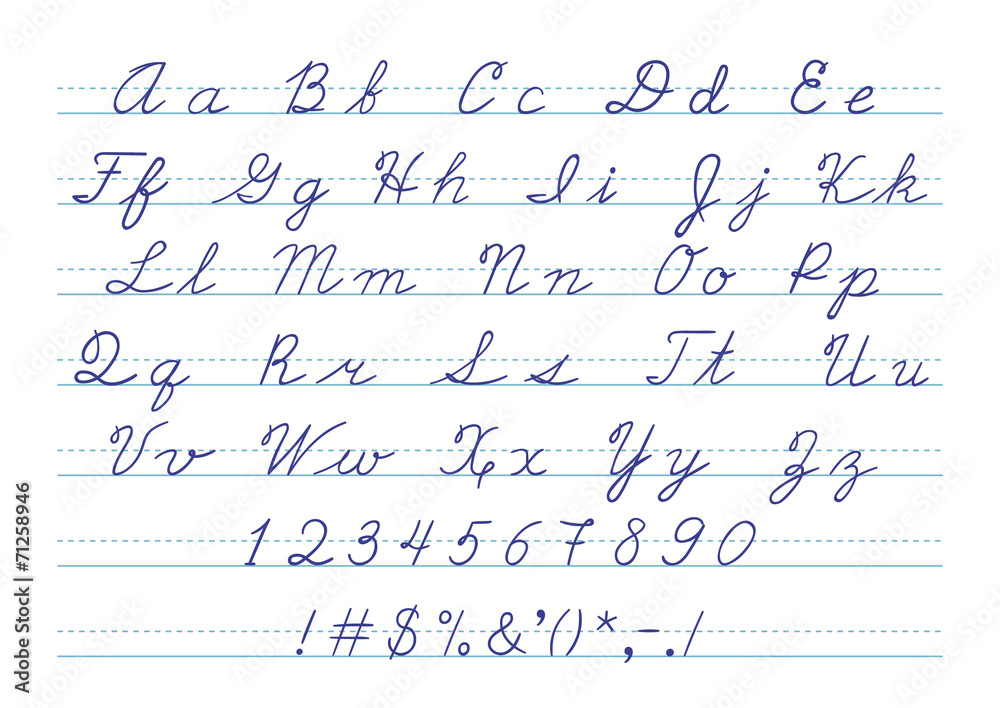 A a B b C c D d E e
F f G g H h I i J j K k
L l M m N n O o P p
Q q R r S s T t U u
V v W w X x Y y Z z
1 2 3 4 5 6 7 8 9 0
! # $ % & ’ ( ) * , - . /
Adobe Stock | #71258946